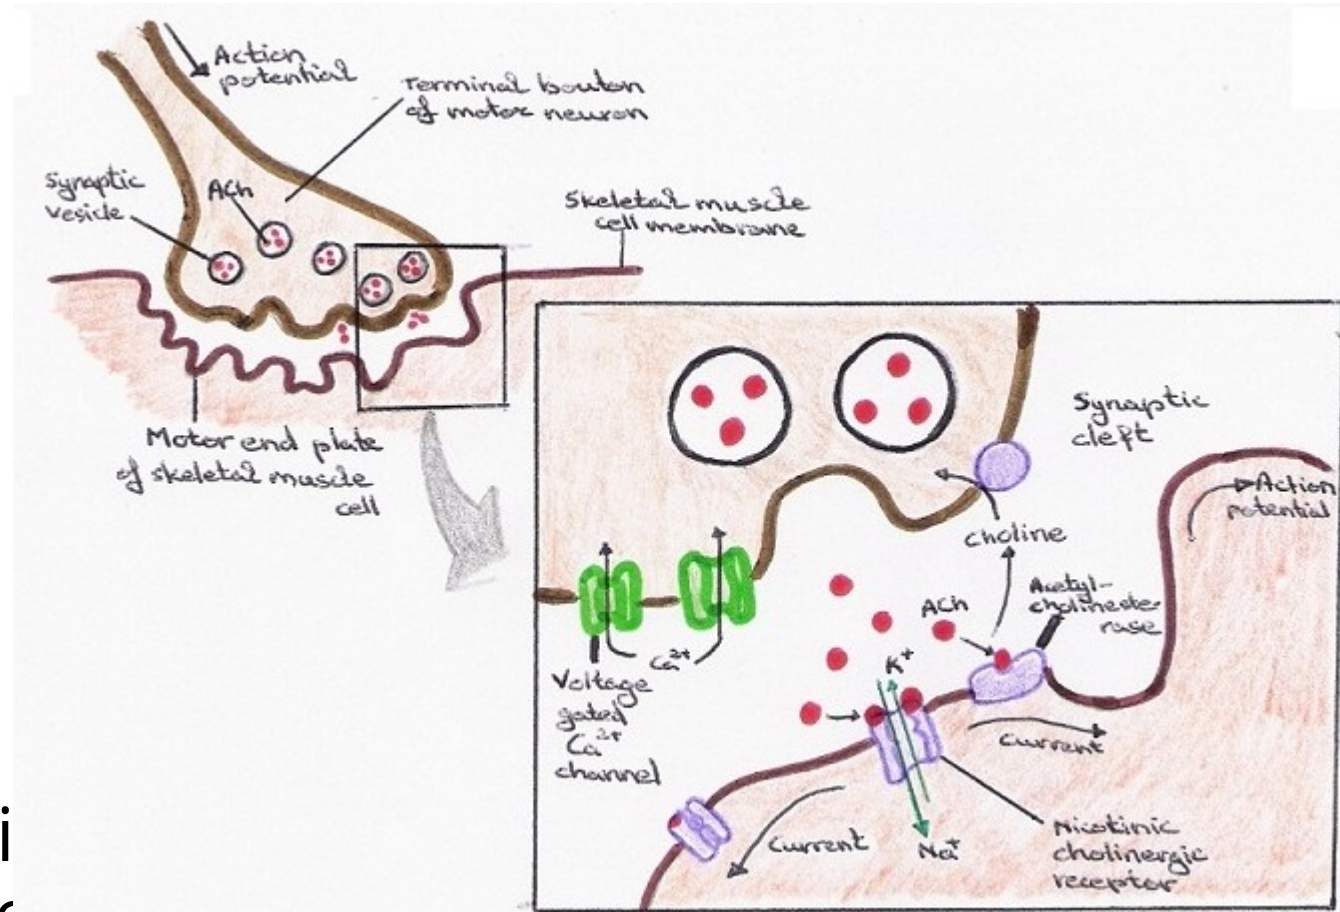 Action
potential
Terminal bouton
of motor neuron
Synaptic
vesicle
ACh
Skeletal muscle
cell membrane
Motor end plate
of skeletal muscle
cell
Synaptic
cleft
Action
potential
Choline
Acetyl-
cholineste-
rase
ACh
K+
Ca2+
Voltage
gated
Ca2+
channel
Current
Current
Na+
Nicotinic
cholinergic
receptor